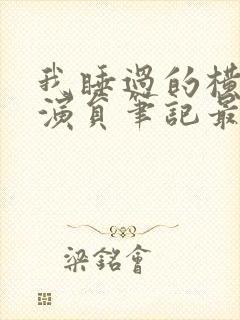 我睡過的橫
演員筆記最
梁銘會